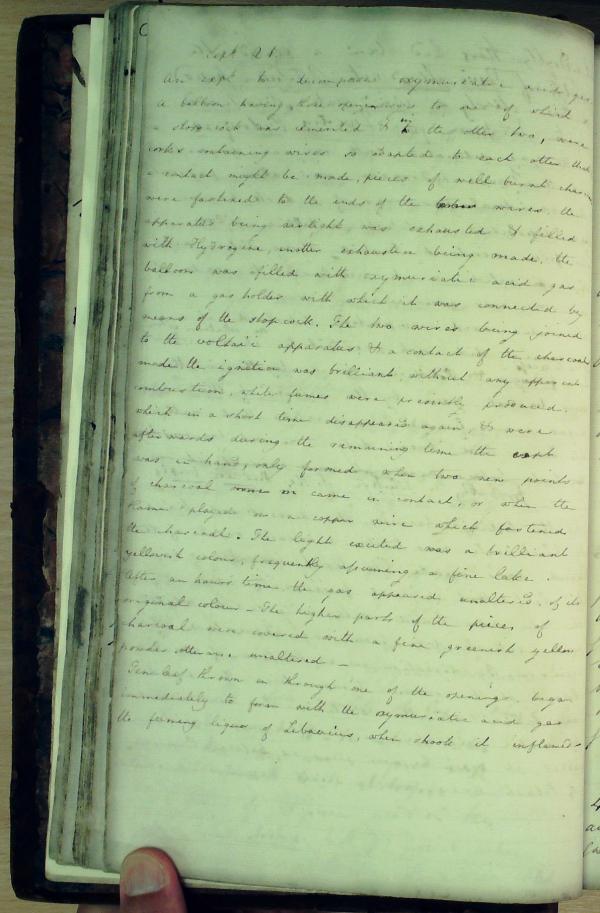 C
Sept. 21.
An expt. to decompose oxymuriatic acid gas
A balloon having three openings to one of which
a stop cock was cemented & in the other two, were
corks containing wires so adapted to each other that
a contact might be made, pieces of well burnt charcoal
were fastened to the ends of the wires. the
apparatus being airtight was exhausted & filled
with Hydrogene, another exhaustion being made, the
balloon was filled with oxymuriatic acid gas
from a gas holder with which it was connected by
means of the stopcock. The two wires being joined
to the voltaic apparatus & a contact of the charcoal
made the ignition was brilliant without any apparent
combustion, white fumes were presently produced.
which in a short time disappeared again, & were
afterwards during the remaining time the expt
was in hand, only formed when two new points
of charcoal came in contact, or when the
flame played on a copper wire which fastened
the charcoal. The light excited was a brilliant
yellowish colour, frequently assuming a fine lake.
After an hours time the gas appeared unaltered, of its
original colour – The higher parts of the pieces of
charcoal were covered with a fine greenish yellow
powder otherwise unaltered –
Tin leaf thrown in through one of the openings began
immediately to form with the oxymuriatic acid gas
the fuming liquor of Libavius, when shook it inflamed –